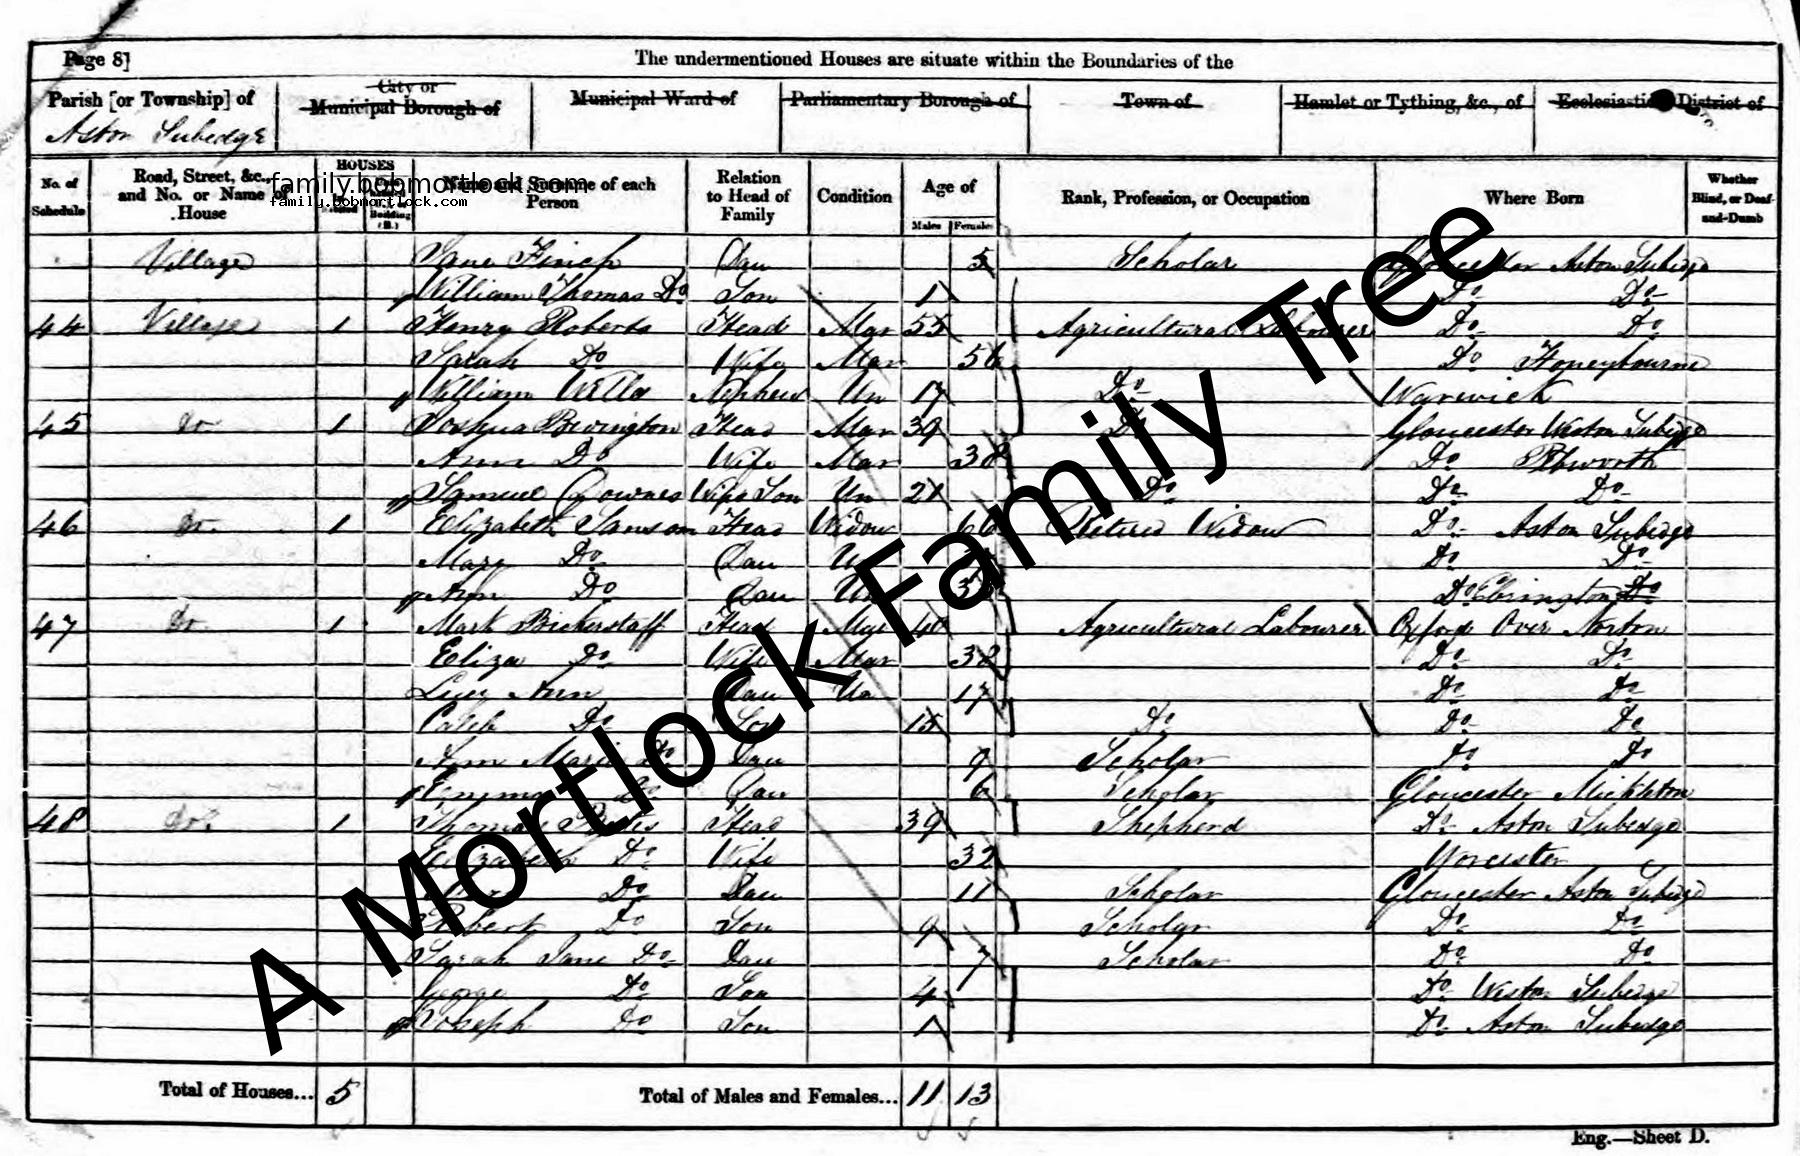 Page 8]
The undermentioned Houses are situate within the Boundaries of the
Parish [or Township] of
City or Municipal Borough of
Municipal Ward of
Parliamentary Borough of
Town of
Hamlet or Tything, &c., of
Ecclesiastical District of
Aston Subedge
No. of Schedule
Road, Street, &c., and No. or Name of House
HOUSES
Name and Surname of each Person
Relation to Head of Family
Condition
Age of
Males
Females
Rank, Profession, or Occupation
Where Born
Whether Blind, or Deaf-and-Dumb
family.bobmortlock.com
family.bobmortlock.com
Village Jane Finch Dau 5 Scholar Gloucester Aston Subedge
William Thomas Do Son 1 Do Do
44 Village 1 Henry Roberts Head Mar 55 Agricultural Labourer Do Do
Sarah Do Wife Mar 56 Do Honeybourne
William Nephew Un 17 Do Warwick
45 Do 1 Joshua Bevington Head Mar 39 Do Gloucester Weston Subedge
Ann Do Wife Mar 38 Do
Samuel Downes Wifes Son Un 21 Do Do Do
46 Do 1 Elizabeth Samson Head Widow 66 Retired Widow Do Aston Subedge
Mary Do Dau Un Do Do
Ann Do Dau Un Do Ebrington Do
47 Do 1 Mark Bickerstaff Head Mar 40 Agricultural Labourer Oxford Over Norton
Eliza Do Wife Mar 38 Do Do
Lucy Ann Dau Un 17 Do Do
Caleb Do Son 15 Do Do Do
Ann Maria Do Dau 9 Scholar Do Do
Emma Do Dau 6 Scholar Gloucester Mickleton
48 Do 1 Thomas Head 39 Shepherd Do Aston Subedge
Elizabeth Do Wife 32 Worcester
Do Dau 11 Scholar Gloucester Aston Subedge
Robert Do Son 9 Scholar Do Do
Sarah Jane Do Dau 7 Scholar Do Do
George Do Son 4 Do Weston Subedge
Joseph Do Son 1 Do Aston Subedge
Total of Houses... 5
Total of Males and Females... 11 13
Eng.—Sheet D.
A Mortlock Family Tree